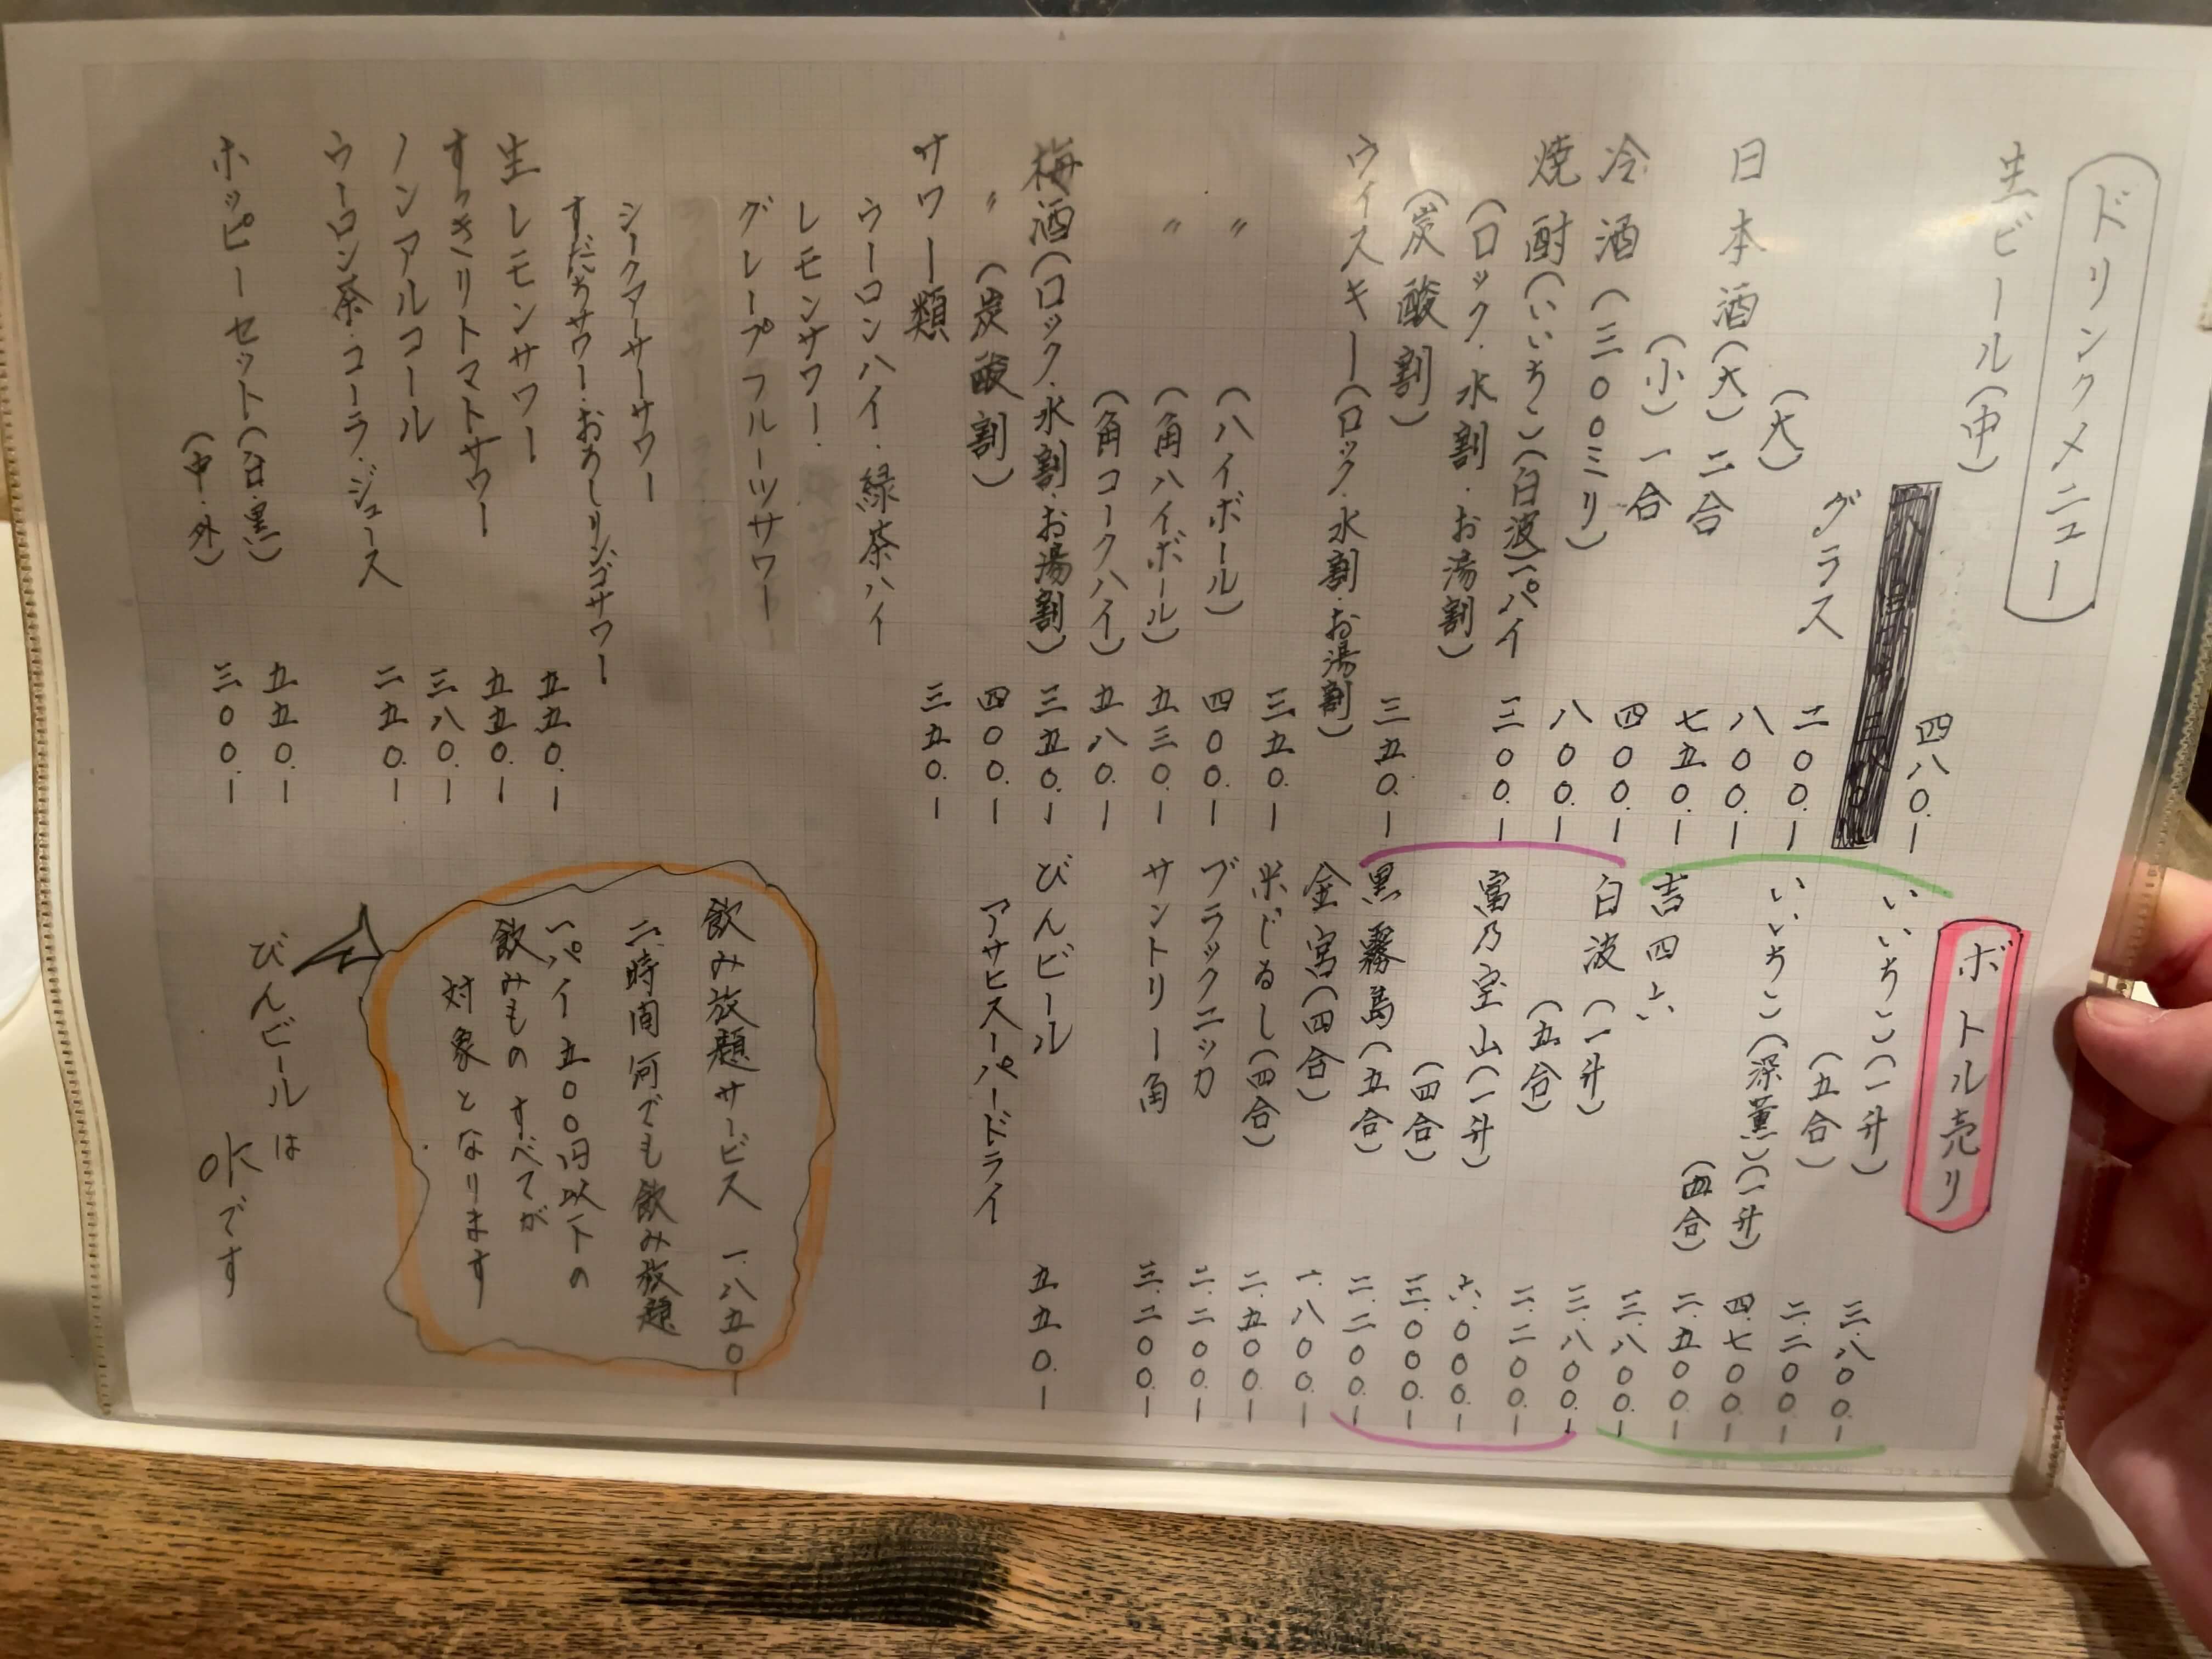 ドリンクメニュー
生ビール(中) 四八〇.ー
グラス
(大) 二〇〇.ー
日本酒(大)二合 八〇〇.ー
(小)一合 七五〇.ー
冷酒(三〇〇ミリ) 四〇〇.ー
焼酎(いいちこ)(白波)一パイ 八〇〇.ー
(ロック.水割.お湯割) 三〇〇.ー
(炭酸割)
ウィスキー(ロック.水割.お湯割) 三五〇.ー
〃 (ハイボール) 三五〇.ー
〃 (角ハイボール) 四〇〇.ー
(角コークハイ) 五三〇.ー
梅酒(ロック.水割.お湯割) 五八〇.ー
〃 (炭酸割) 三五〇.ー
サワー類 四〇〇.ー
ウーロンハイ.緑茶ハイ 三五〇.ー
レモンサワー.
グレープフルーツサワー
シークアーサーサワー
すだちサワー.おろしリンゴサワー
生レモンサワー 五五〇.ー
すっきりトマトサワー 五五〇.ー
ノンアルコール 三八〇.ー
ウーロン茶.コーラ.ジュース 二五〇.ー
ホッピーセット(白.黒) 五五〇.ー
(中.外) 三〇〇.ー
ボトル売り
いいちこ(一升) 三.八〇〇.ー
(五合) 二.二〇〇.ー
いいちこ(深薫)(一升) 四.七〇〇.ー
(四合) 二.五〇〇.ー
吉四六 三.八〇〇.ー
白波(一升) 三.八〇〇.ー
(五合) 二.二〇〇.ー
富乃宝山(一升) 六.〇〇〇.ー
(四合) 三.〇〇〇.ー
黒霧島(五合) 二.二〇〇.ー
金宮(四合) 一.八〇〇.ー
米じるし(四合) 二.五〇〇.ー
ブラックニッカ 二.二〇〇.ー
サントリー角 三.二〇〇.ー
びんビール 五五〇.ー
アサヒスーパードライ
飲み放題サービス 一.八五〇ー
二時間何でも飲み放題
一パイ五〇〇円以下の
飲みものすべてが
対象となります
びんビールは
OKです